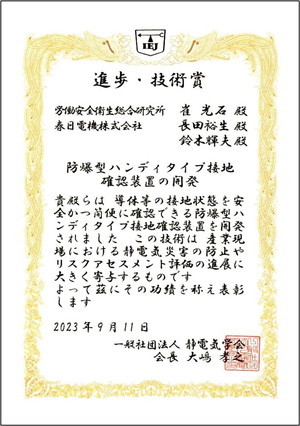 IEJ
進歩・技術賞
労働安全衛生総合研究所 崔 光石 殿
春日電機株式会社 長田裕生 殿
鈴木輝夫 殿
防爆型ハンディタイプ接地
確認装置の開発
貴殿らは 導体等の接地状態を安
全かつ簡便に確認できる防爆型ハ
ンディタイプ接地確認装置を開発
されました この技術は 産業現
場における静電気災害の防止や
リスクアセスメント評価の進展に
大きく寄与するものです
よって茲にその功績を称え表彰
します
2023年9月11日
一般社団法人 静電気学会
会長 大嶋 孝之